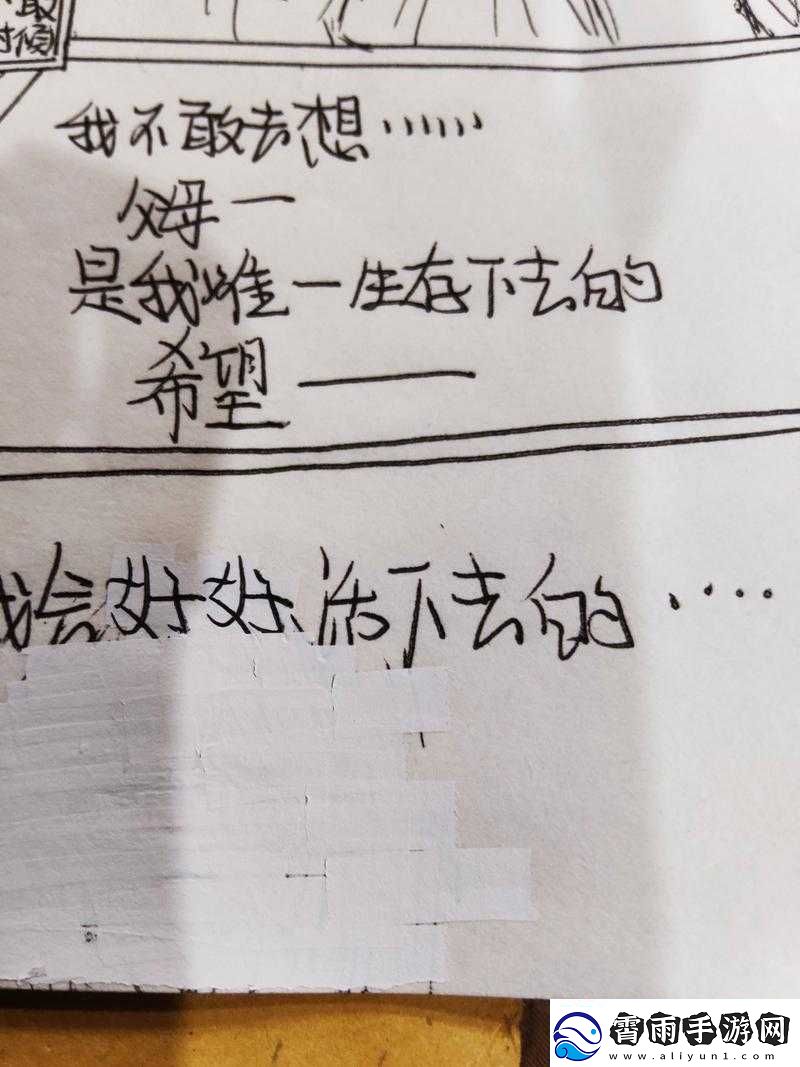 最
时候
我不敢去想……
父母一
是我唯一生存下去的
希望——
我会好好活下去的····
霄雨手游网
www.aliyun1.com